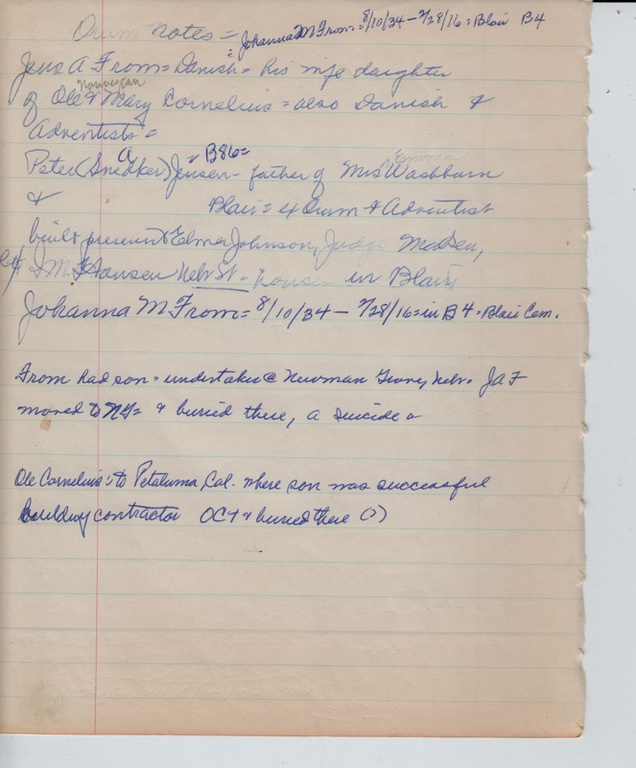 Orum Notes = Johanna M From = 8/10/34 - 7/28/16 = Blair B4
Jens A From = Danish = his wife daughter
Norwegian
of Ole & Mary Cornelius = also Danish &
Adventists =
Peter (Snedker) Jensen - B86 = father of Mrs Emma Washburn
& Blair = ex Orum & Adventist
built present Elmer Johnson, Judge
of I.M. Hansen Nebr St. - houses in Blair,
Johanna M From = 8/10/34 - 7/28/16 = in B4 = Blair Cem.
From had son = undertaker @ Newman Grove, Nebr. JAF
moved to NY = & buried there, a suicide
Ole Cornelius = to Petaluma, Cal. where son was successful
building contractor OC & buried there (?)